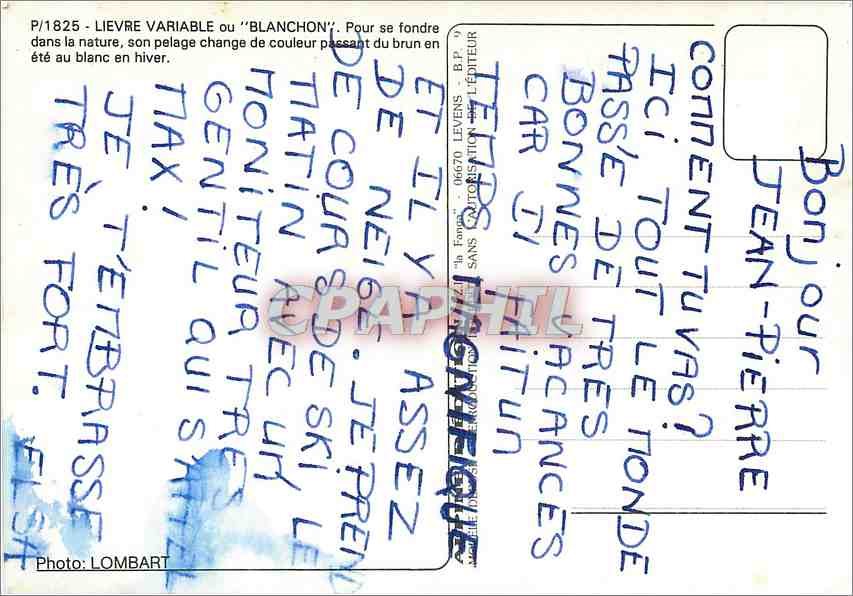 P/1825 - LIEVRE VARIABLE ou "BLANCHON". Pour se fondre
dans la nature, son pelage change de couleur passant du brun en
été au blanc en hiver.
Bonjour
JEAN-PIERRE
COMMENT TU VAS?
ICI TOUT LE MONDE
PASSE DE TRES
BONNES VACANCES
CAR IL FAIT UN
TEMPS MAGNIFIQUE
ET IL Y A ASSEZ
DE NEIGE. JE PREND
DE COURS DE SKI LE
MATIN AVEC UN
MONITEUR TRES
GENTIL QUI S'APPEL
MAX!
JE T'EMBRASSE
TRÈS FORT.
ELSA
"la Fanga" - 06670 LEVENS - B.P.
SANS L'AUTORISATION DE L'ÉDITEUR
Photo: LOMBART
CPAPHIL